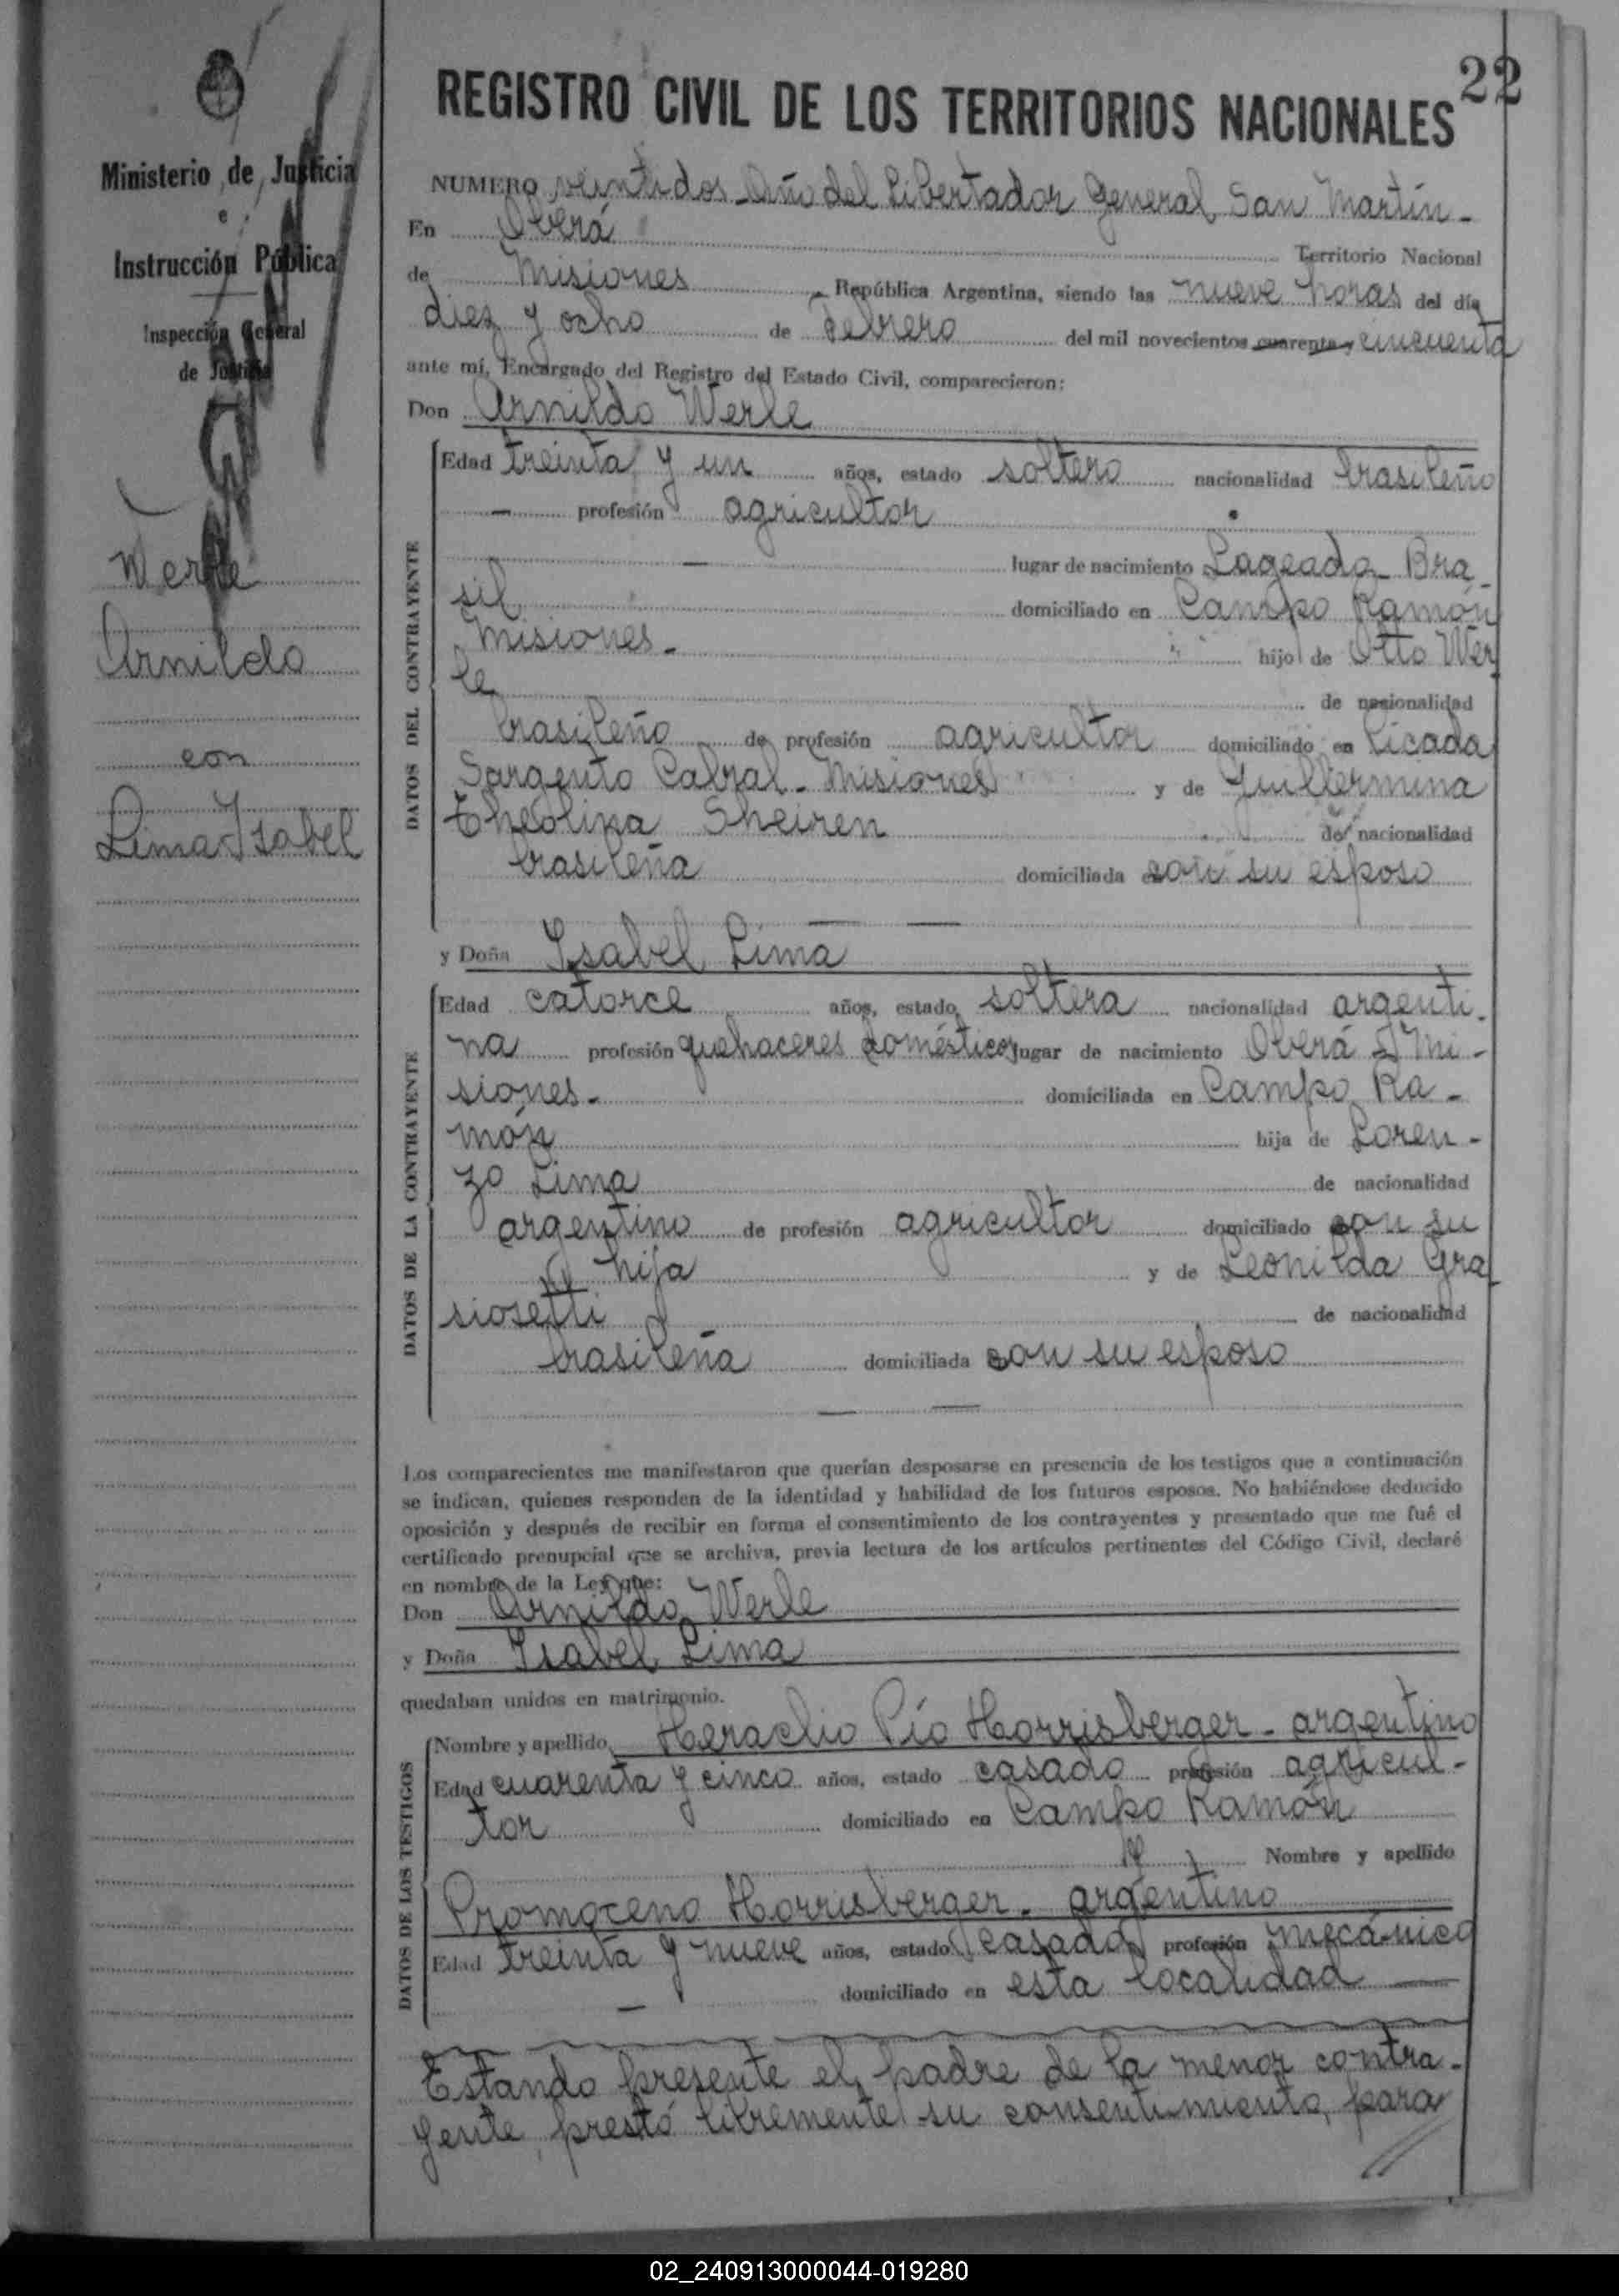 22
REGISTRO CIVIL DE LOS TERRITORIOS NACIONALES
Ministerio de Justicia
e
Instrucción Pública
Inspección General
de Justicia
Werle
Arnildo
con
Lima Isabel
NUMERO veintidos - Año del Libertador General San Martín -
En Oberá Territorio Nacional
de Misiones República Argentina, siendo las nueve horas del día
diez y ocho de Febrero del mil novecientos cuarenta y cincuenta
ante mí, Encargado del Registro del Estado Civil, comparecieron:
Don Arnildo Werle
DATOS DEL CONTRAYENTE
Edad treinta y un años, estado soltero nacionalidad brasileño
- profesión agricultor
- lugar de nacimiento Lageado - Bra-
sil domiciliado en Campo Ramón
Misiones - hijo de Otto Wer
le de nacionalidad
brasileño de profesión agricultor domiciliado en Picada
Sargento Cabral - Misiones y de Guillermina
Sheiren de nacionalidad
brasileña domiciliada con su esposo
y Doña Isabel Lima
DATOS DE LA CONTRAYENTE
Edad catorce años, estado soltera nacionalidad argenti-
na profesión quehaceres domésticos lugar de nacimiento Oberá Mi-
siones - domiciliada en Campo Ra-
món hija de Loren-
zo Lima de nacionalidad
argentino de profesión agricultor domiciliado con su
hija y de Leonilda Gra
siosetti de nacionalidad
brasileña domiciliada con su esposo
Los comparecientes me manifestaron que querían desposarse en presencia de los testigos que a continuación
se indican, quienes responden de la identidad y habilidad de los futuros esposos. No habiéndose deducido
oposición y después de recibir en forma el consentimiento de los contrayentes y presentado que me fué el
certificado prenupcial que se archiva, previa lectura de los artículos pertinentes del Código Civil, declaré
en nombre de la Ley que:
Don Arnildo Werle
y Doña Isabel Lima
quedaban unidos en matrimonio.
DATOS DE LOS TESTIGOS
Nombre y apellido Heraclio Pío Horrisberger - argentino
Edad cuarenta y cinco años, estado casado profesión agricul-
tor domiciliado en Campo Ramón
y Nombre y apellido
Promoceno Horrisberger - argentino
Edad treinta y nueve años, estado casado profesión mecánico
- domiciliado en esta localidad
Estando presente el padre de la menor contra-
yente, prestó libremente su consentimiento para
02_240913000044-019280